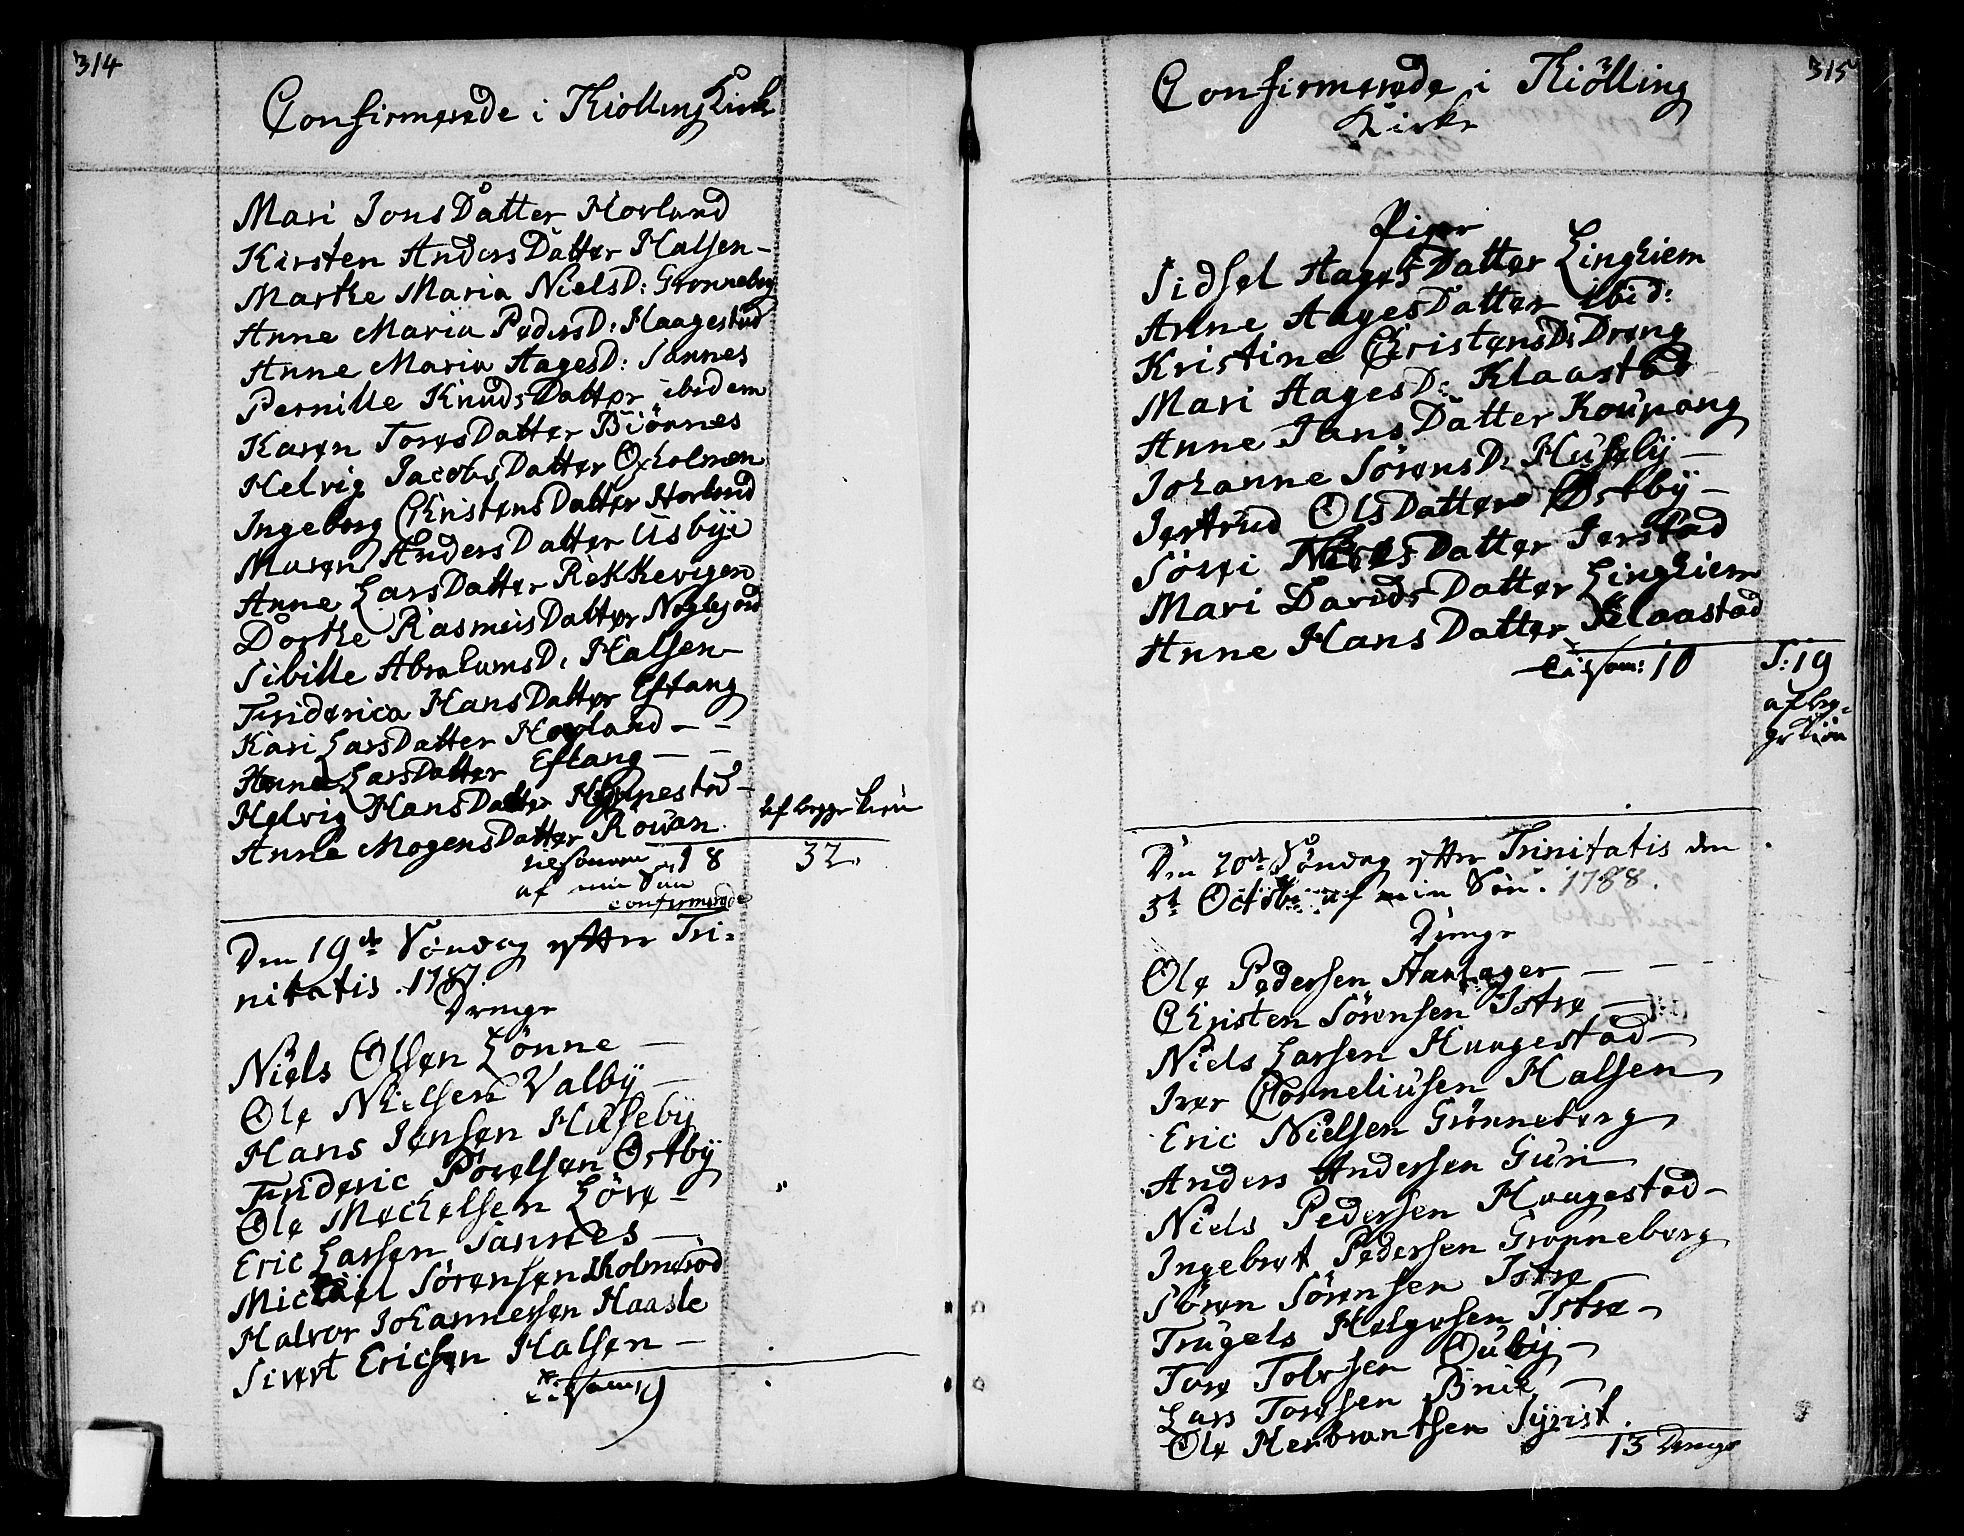 314
Confirmerede i Kiölling Kirk
Mari Jons Datter Horland
Kirsten Anders Datter Halsen -
Marthe Maria Niels D: Grönneberg
Anne Maria Peders D: Haagestad
Anne Maria Aages D: Sannes
Pernille Knuds Datter ibidem
Karen Tores Datter Biönnes
Helvig Jacobs Datter Oxholmen
Ingeborg Christens Datter Horland
Maren Anders Datter Usbye
Anne Lars Datter Rekkevigen
Dorthe Rasmus Datter Noglegord
Sibille Abrahams D: Halsen
Friderica Hans Datter Eftang
Kari Lars Datter Horland - -
Anne Lars Datter Eftang - -
Helvig Hans Datter Heppestad -
Anne Mogens Datter Rouan.
tilsammen 18
af begge kiön
32.
af min Sön
confirmerede
Den 19de Söndag efter Tri-
nitatis 1787.
Drenge
Niels Olsen Lönne -
Ole Nielsen Valby -
Hans Jensen Huseby
Frideric Povelsen Ostby
Ole Mechelsen Löve -
Eric Larsen Sannes -
Michael Sörensen Holmeröd
Halvor Johannesen Haasle
Sivert Ericsen Halsen -
tilsam: 9
315
Confirmerede i Kiölling
Kirke
Piger
Sidsel Aages Datter Linghiem
Anne Aages Datter ibid:
Kristine Christens D: Dreng
Mari Aages D: Klaastad
Anne Jans Datter Koupang
Johanne Sörens D: Huseby -
Jertrud Ols Datter Ostby -
Sörei Niels Datter Jerstad
Mari Davids Datter Linghiem
Anne Hans Datter Klaastad
tilsam: 10
S: 19
af beg-
ge kiön
Den 20de Söndag efter Trinitatis den
5t Octobr af min Sön. 1788.
Drenge
Ole Pedersen Hanlager - - -
Christen Sörensen Istre -
Niels Larsen Haagestad -
Iver Corneliusen Halsen
Eric Nielsen Grönneberg
Anders Andersen Guri
Niels Pedersen Haagestad -
Ingebret Pedersen Grönneberg
Sören Sörensen Istre
Trugels Helgesen Istre -
Tore Tolvsen Ouby -
Lars Toresen Brue -
Ole Herbrantsen Syrist.
13 Drenge